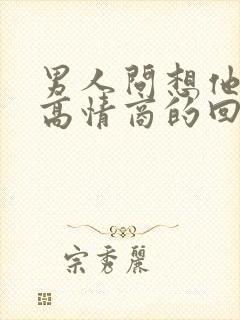 男人問想他
高情商的回
宗秀麗